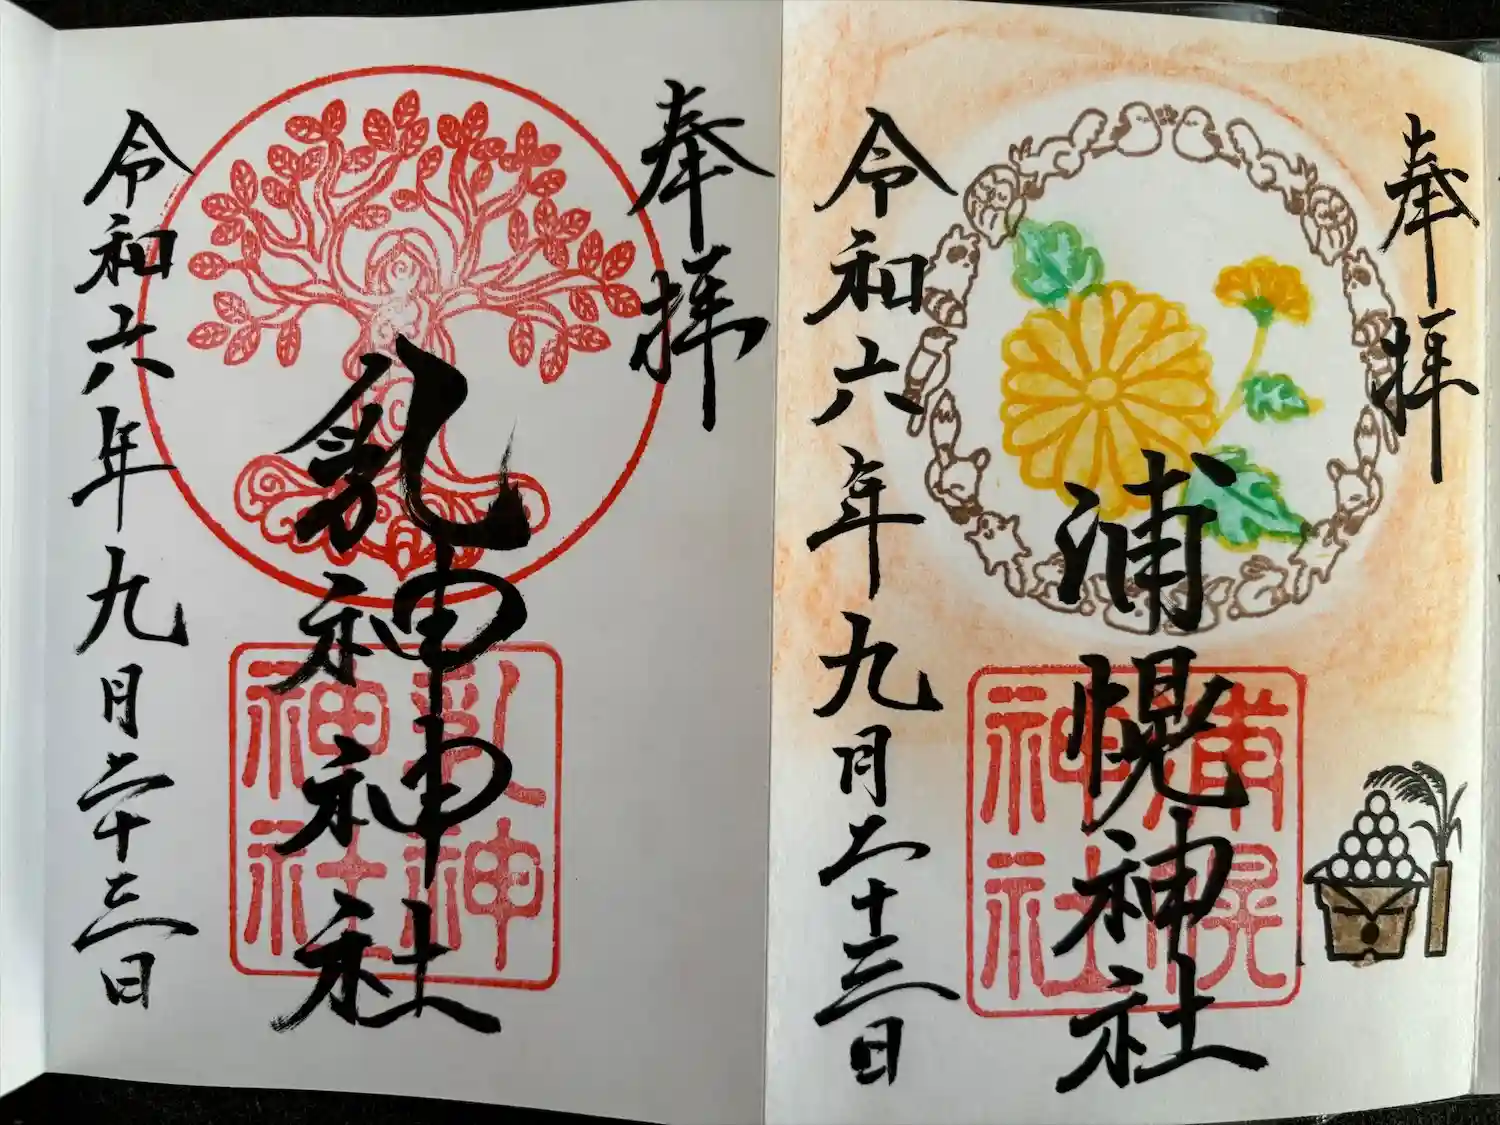 奉拝
乳神神社
令和六年九月二十三日
乳神
神社
奉拝
浦幌神社
令和六年九月二十三日
浦幌
神社